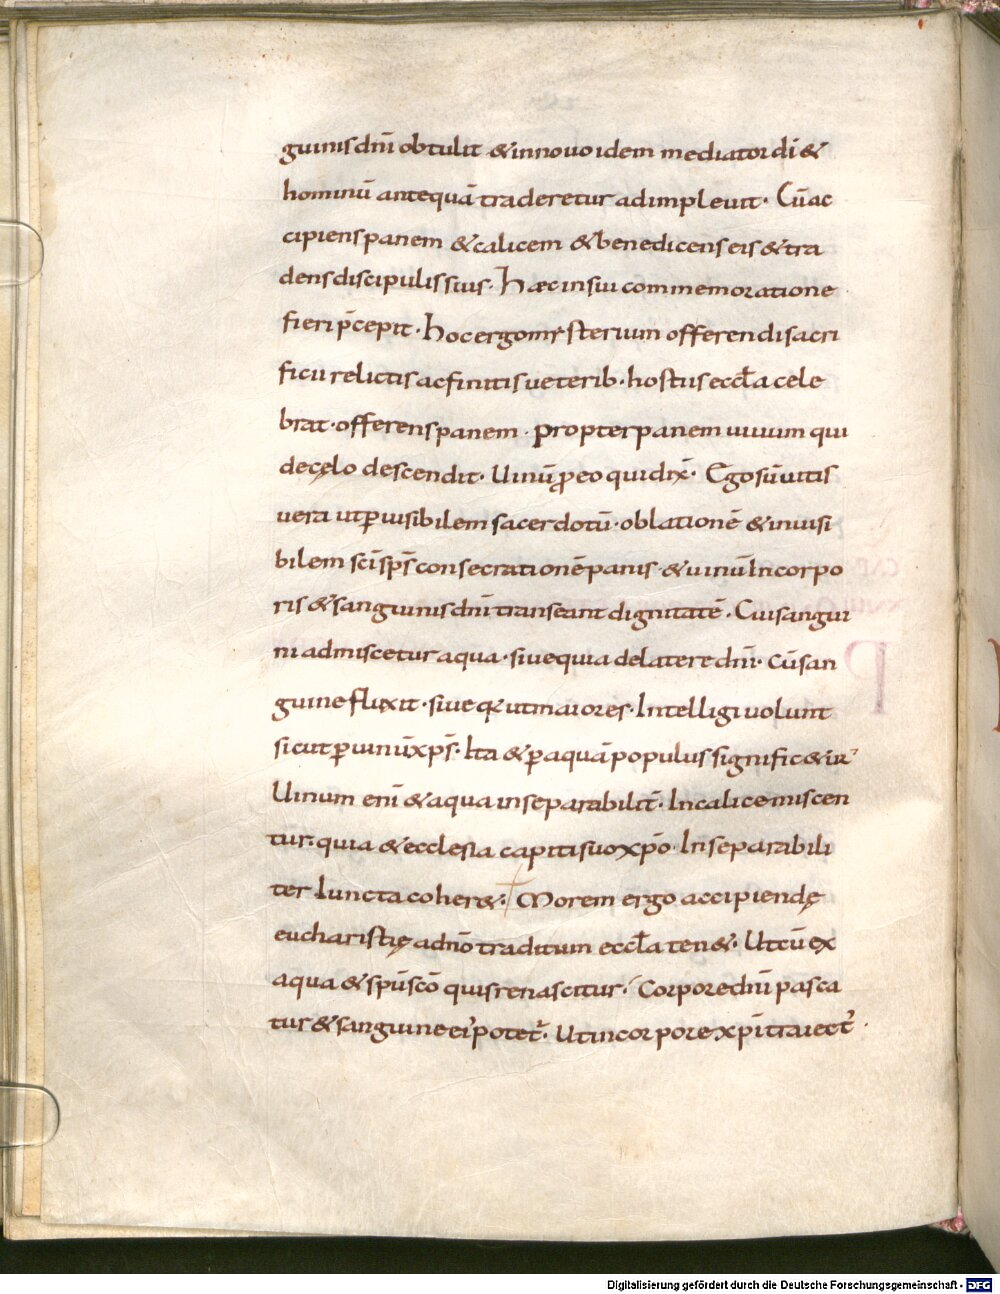 guinis dn̄i obtulit & in nouo idem mediator dī &
hominū antequā traderetur adimpleuit. Cū ac
cipiens panem & calicem & benedicens eis & tra
dens discipulis suis. Haec in sui commemoratione
fieri p̄cepit. Hoc ergo mysterium offerendi sacri
ficii relictis ac finitis ueterib. hostiis eccl̄a cele
brat. offerens panem. propter panem uiuum qui
de cęlo descendit. Uinū ꝓ eo qui dix̄. Ego sū uitis
uera ut ꝑ uisibilem sacerdotū. oblationē & inuisi
bilem sc̄i sp̄s consecrationē panis. & uinū In corpo
ris & sanguinis dn̄i transeant dignitatē. Cui sangui
ni admiscetur aqua. siue quia de latere dn̄i. cū san
guine fluxit. siue qꝛ ut maiores. Intelligi uolunt
sicut ꝑ uinū xp̄s. Ita & ꝑ aquā populus signific&ur
Uinum enī & aqua inseparabilit̄. In calice miscen
tur. quia & ecclesia capiti suo xp̄o. Inseparabili
ter Iuncta coher&. Morem ergo accipiendę
eucharistię a dn̄o traditum eccl̄a ten&. Ut cū ex
aqua & sp̄u sc̄o quis renascitur. Corpore dn̄i pasca
tur & sanguine ei' potet̄. Ut in corpore xp̄i traiect̄.
Digitalisierung gefördert durch die Deutsche Forschungsgemeinschaft - DFG